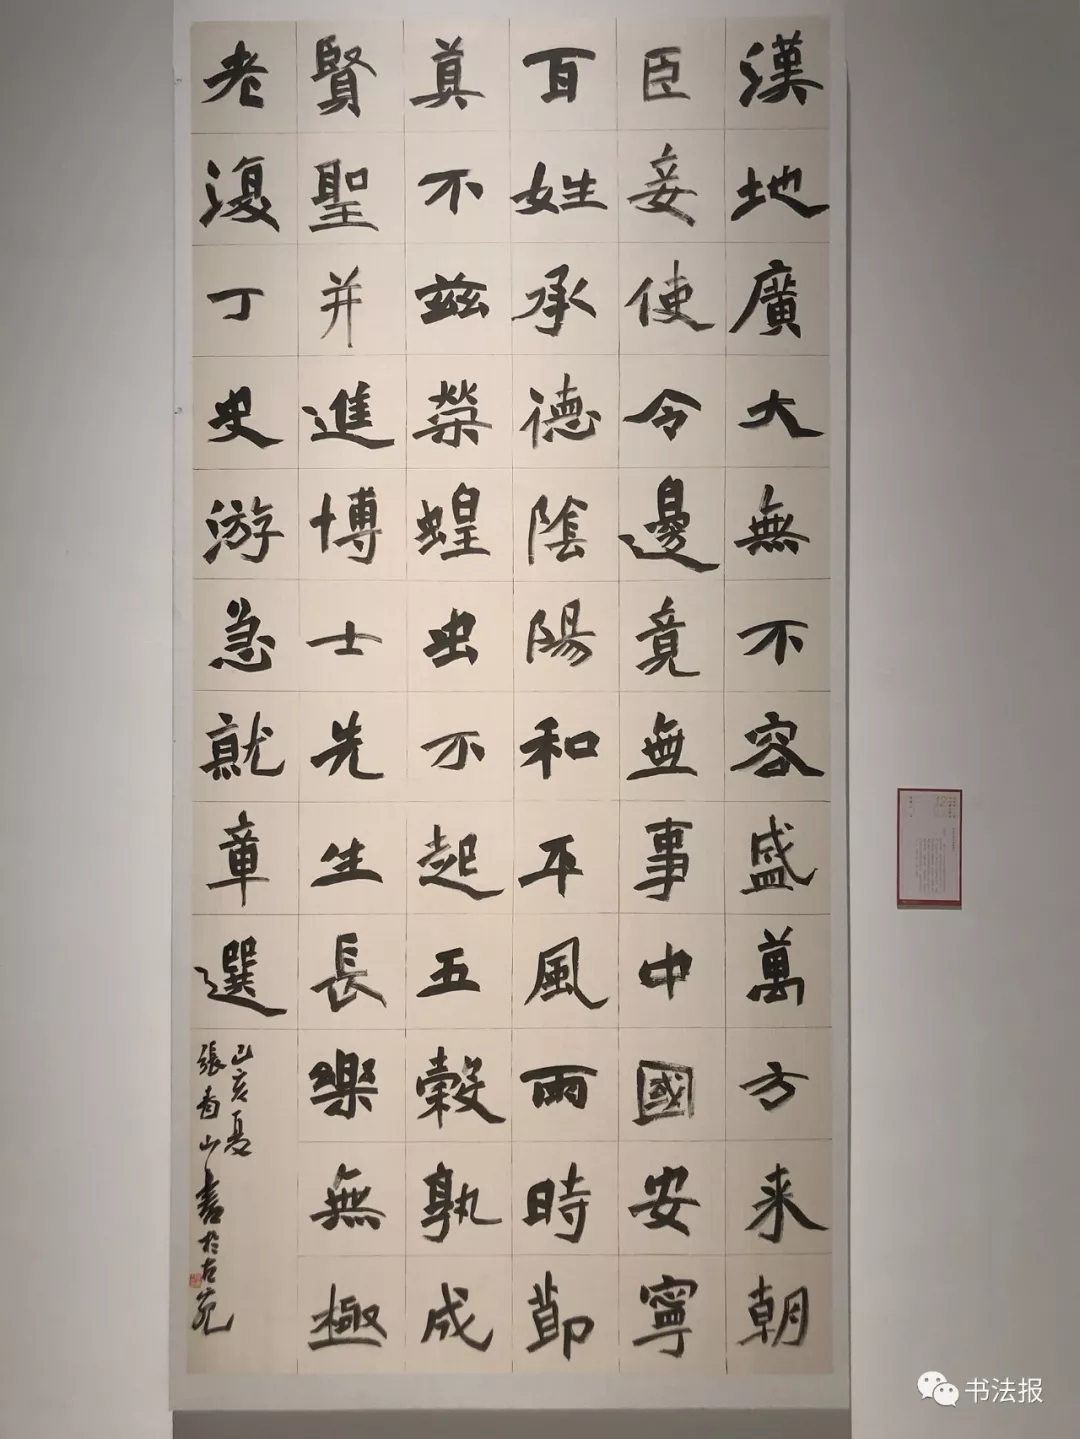 漢地廣大無不容盛萬方来朝
臣妾使令邊竟無事中國安寧
百姓承德陰陽和平風雨時節
莫不兹榮蝗虫不起五穀孰成
賢聖并進博士先生長樂無極
老復丁史游急就章選
己亥夏
張青山書於
书法报